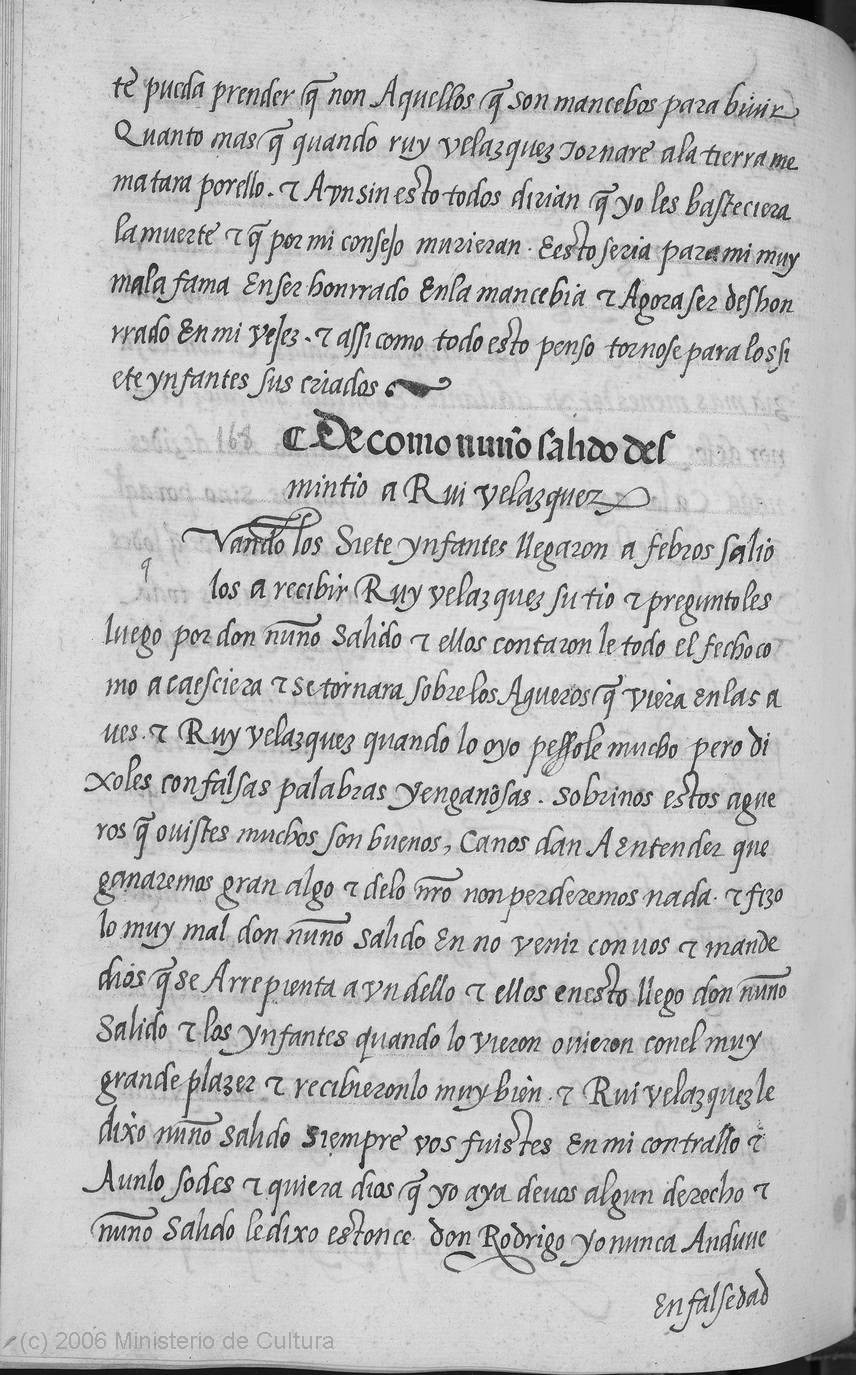 te pueda prender q̃ non Aquellos q̃ son mancebos para biuir
Quanto mas q̃ quando ruy velazquez tornare ala tierra me
matara porello. τ Avn sin esto todos dirian q̃ yo les basteciera
la muerte τ q̃ por mi consejo murieran. Eesto seria para mi muy
mala fama En ser honrrado Enla mancebia τ Agora ser deshon
rrado En mi vejez. τ assi como todo esto penso tornose para los si
ete ynfantes sus criados
¶ De como nuño salido des
mintio a Rui velazquez
q
Vando los Siete ynfantes llegaron a febros salio
los a recibir Ruy velazquez su tio τ preguntoles
luego por don nuño Salido τ ellos contaron le todo el fecho co
mo acaesciera τ se tornara sobre los Agueros q̃ viera En las a
ues. τ Ruy velazquez quando lo oyo pessole mucho pero di
xoles con falsas palabras y enganosas. sobrinos estos ague
ros q̃ ouistes muchos son buenos, Ca nos dan A Entender que
ganaremos gran algo τ delo nr̃o non perderemos nada. τ fizo
lo muy mal don nuño Salido En no venir con uos τ mande
dios q̃ se Arrepienta avn dello τ ellos en esto llego don nuño
Salido τ los ynfantes quando lo vieron ouieron conel muy
grande plazer τ recibieronlo muy bien. τ Rui velazquez le
dixo nuño Salido Siempre vos fuistes En mi contrallo τ
Aunlo sodes τ quiera dios q̃ yo aya deuos algun derecho τ
nuño Salido le dixo estonce don Rodrigo yo nunca Anduue
En falsedad
(c) 2006 Ministerio de Cultura